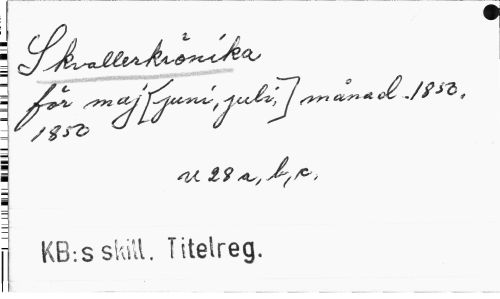 Skvallerkrönika
för maj [juni, juli,] månad. 1850.
1850
V 28 a, b, c.
KB:s skill. Titelreg.